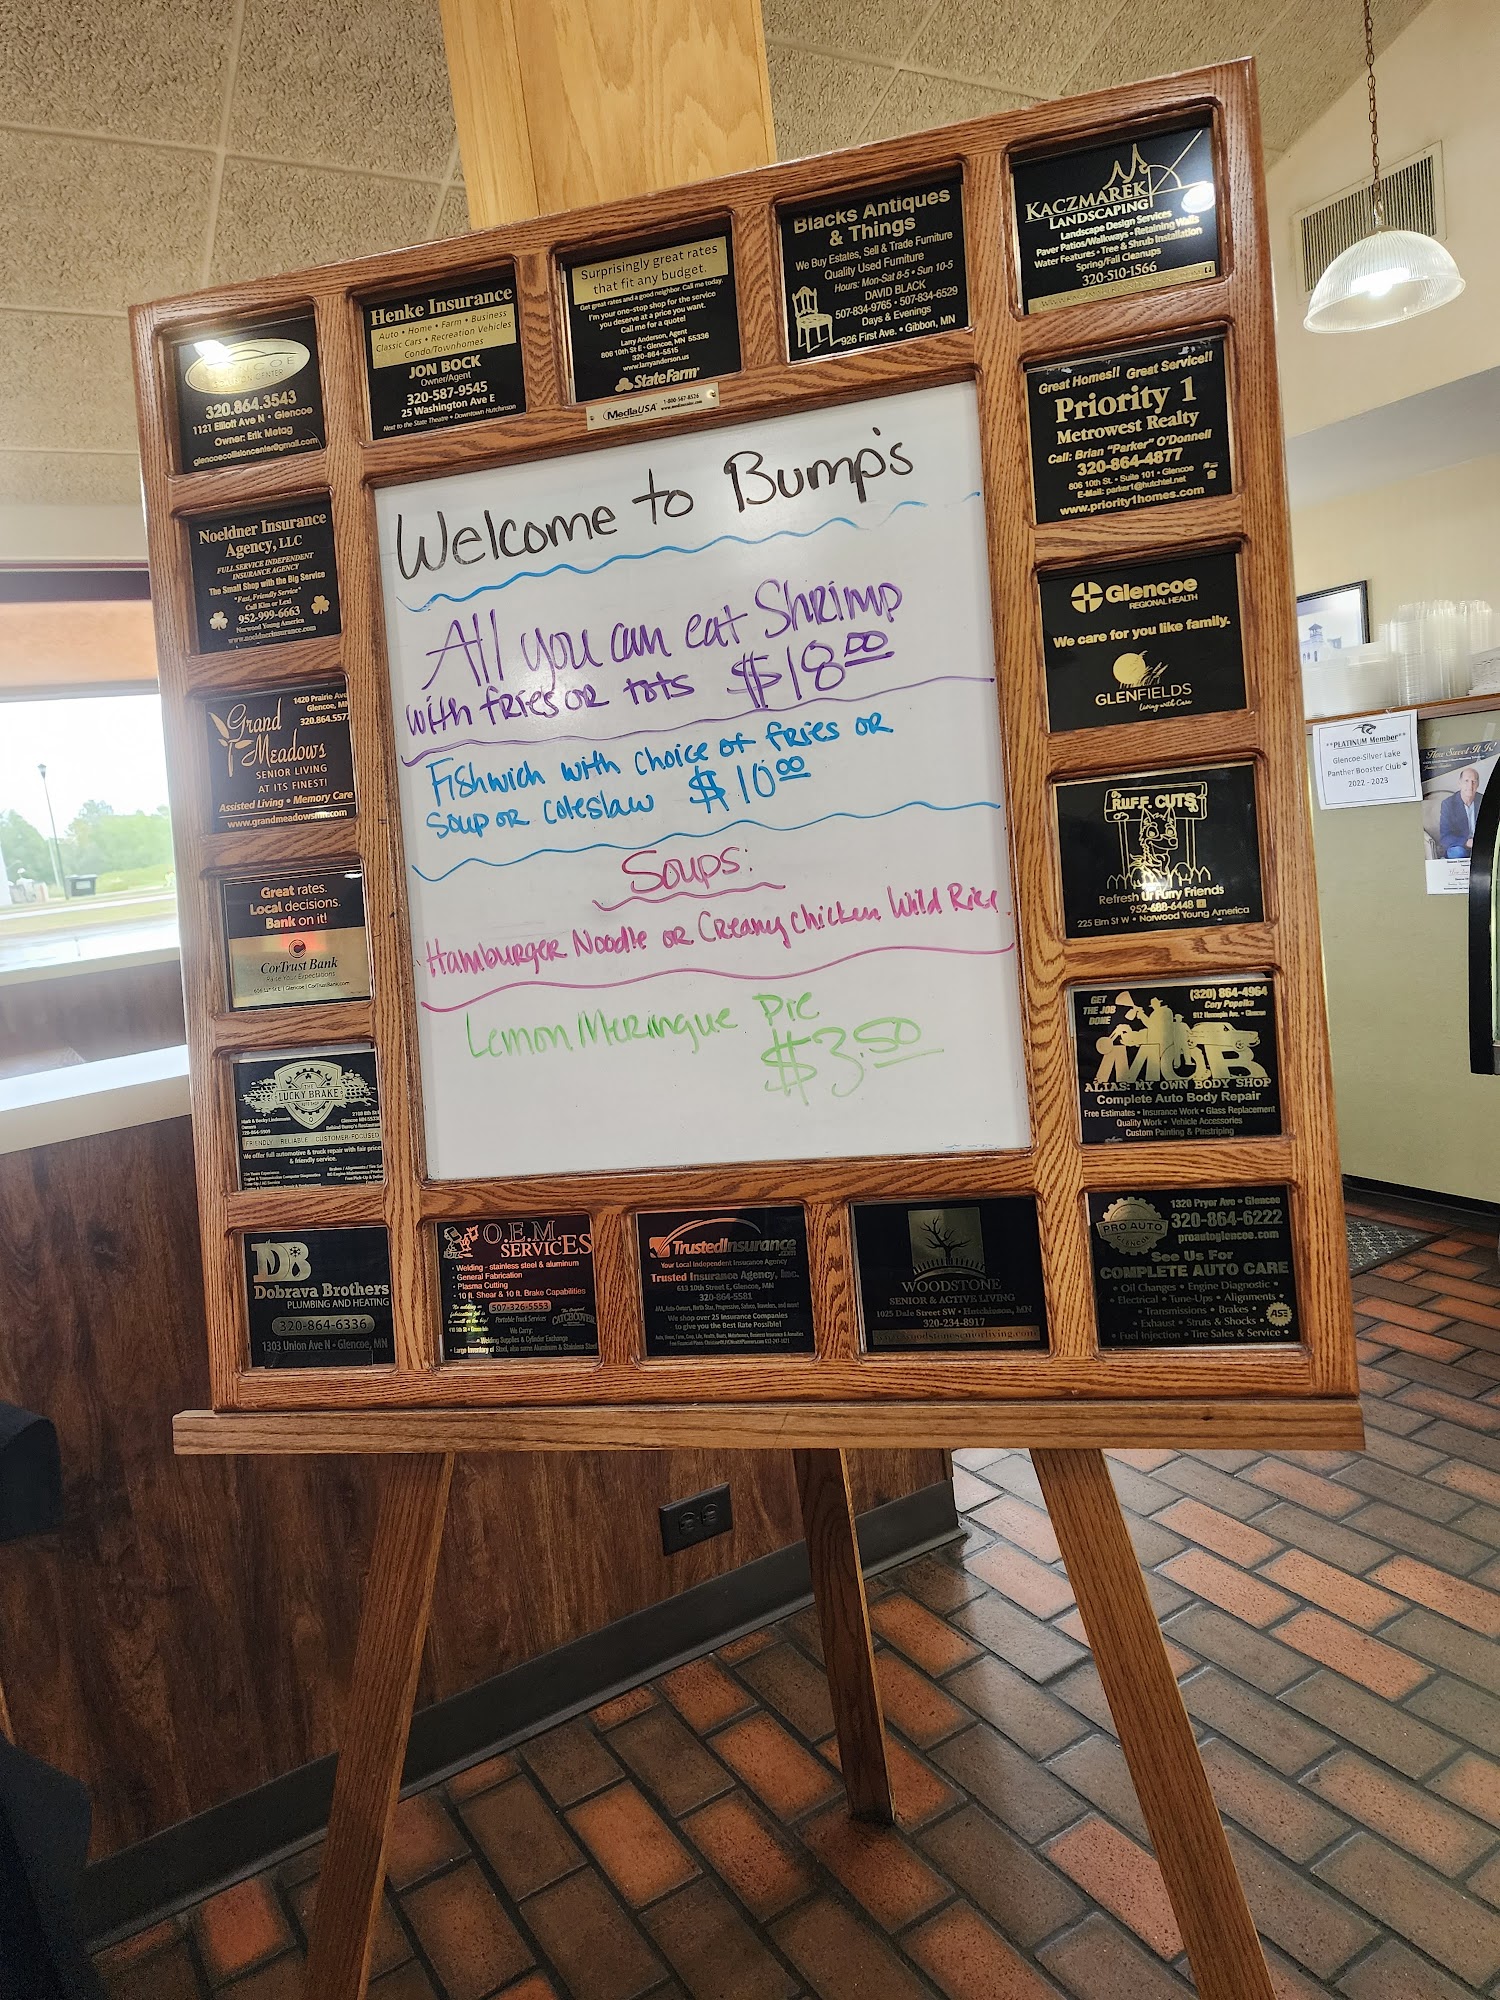 Welcome to Bump's
All you can eat Shrimp
with fries or tots $18.00
Fishwich with choice of fries or
soup or coleslaw $10.00
Soups:
Hamburger Noodle or Creamy Chicken Wild Rice.
Lemon Meringue Pie
$3.50
320.864.3543
1121 Elliott Ave N • Glencoe
Owner: Erik Metag
glencoecollisioncenter@gmail.com
Henke Insurance
Auto • Home • Farm • Business
Classic Cars • Recreation Vehicles
Condo/Townhomes
JON BOCK
Owner/Agent
320-587-9545
25 Washington Ave E
Next to the State Theatre • Downtown Hutchinson
Surprisingly great rates
that fit any budget.
Get great rates and a good neighbor. Call me today.
I'm your one-stop shop for the service
you deserve at a price you want.
Call me for a quote!
Larry Anderson, Agent
806 10th St E • Glencoe, MN 55336
320-864-5515
www.larryanderson.us
StateFarm
MediaUSA
1-800-567-8526
Blacks Antiques
& Things
We Buy Estates, Sell & Trade Furniture
Quality Used Furniture
Hours: Mon-Sat 8-5 • Sun 10-5
DAVID BLACK
507-834-9765 • 507-834-6529
Days & Evenings
926 First Ave. • Gibbon, MN
KACZMAREK
LANDSCAPING
Landscape Design Services
Paver Patios/Walkways • Retaining Walls
Water Features • Tree & Shrub Installation
Spring/Fall Cleanups
320-510-1566
Noeldner Insurance
Agency, LLC
FULL SERVICE INDEPENDENT
INSURANCE AGENCY
The Small Shop with the Big Service
"Fast, Friendly Service"
Call Kim or Lexi
952-999-6663
Norwood Young America
www.noeldnerinsurance.com
Great Homes!! Great Service!!
Priority 1
Metrowest Realty
Call: Brian "Parker" O'Donnell
320-864-4877
806 10th St. • Suite 101 • Glencoe
E-Mail: parker1@hutchtel.net
www.priority1homes.com
1420 Prairie Ave
Glencoe, MN
320.864.5577
Grand
Meadows
SENIOR LIVING
AT ITS FINEST!
Assisted Living • Memory Care
www.grandmeadowsmn.com
Glencoe
REGIONAL HEALTH
We care for you like family.
GLENFIELDS
Living with Care
Great rates.
Local decisions.
Bank on it!
CorTrust Bank
R.U.F.F. CUTS
Refresh Ur Furry Friends
952-688-6448
225 Elm St W • Norwood Young America
THE
LUCKY BRAKE
Glencoe MN 55336
Behind Bump's Restaurant
FRIENDLY RELIABLE CUSTOMER-FOCUSED
We offer full automotive & truck repair with fair prices
& friendly service.
GET
THE JOB
DONE
(320) 864-4964
Cory Popelka
912 Hennepin Ave. • Glencoe
MOB
ALIAS: MY OWN BODY SHOP
Complete Auto Body Repair
Free Estimates • Insurance Work • Glass Replacement
Quality Work • Vehicle Accessories
Custom Painting & Pinstriping
DB
Dobrava Brothers
PLUMBING AND HEATING
320-864-6336
1303 Union Ave N • Glencoe, MN
O.E.M.
SERVICES
• Welding - stainless steel & aluminum
• General Fabrication
• Plasma Cutting
• 10 ft. Shear & 10 ft. Brake Capabilities
507-326-5553
Portable Truck Services
We Carry:
• Welding Supplies & Cylinder Exchange
TrustedInsurance.com
Your Local Independent Insurance Agency
Trusted Insurance Agency, Inc.
613 10th Street E, Glencoe, MN
320-864-5581
We shop over 25 Insurance Companies
to give you the Best Rate Possible!
WOODSTONE
SENIOR & ACTIVE LIVING
1025 Dale Street SW • Hutchinson, MN
320-234-8917
PRO AUTO
GLENCOE
1320 Pryor Ave • Glencoe
320-864-6222
proautoglencoe.com
See Us For
COMPLETE AUTO CARE
• Oil Changes • Engine Diagnostic •
• Electrical • Tune-Ups • Alignments •
• Transmissions • Brakes •
• Exhaust • Struts & Shocks •
• Fuel Injection • Tire Sales & Service •
ASE
**PLATINUM Member**
Glencoe-Silver Lake
Panther Booster Club
2022 - 2023